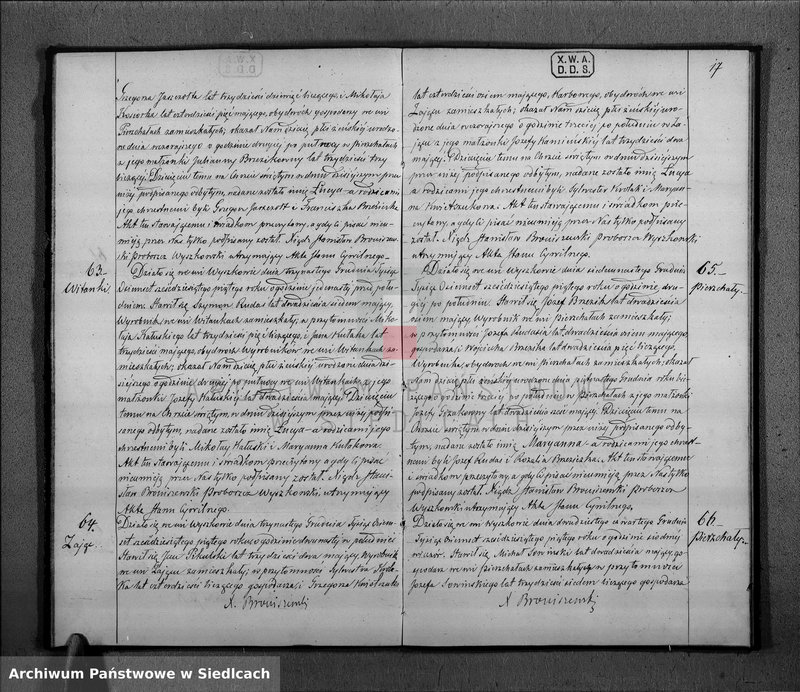 X.W.A.
D.D.S.
17
Grzegorza Jaszczołta lat trzydzieści dziewięć liczącego, i Mikołaja
lat czterdzieści pięć mającego, obydwóch gospodarzy we wsi
Pierzchałach zamieszkałych; okazał Nam dziecię płci żeńskiej urodzo-
ne dnia wczorajszego o godzinie drugiej po północy w Pierzchałach
z jego małżonki Julianny lat trzydzieści trzy
liczącej. Dziecięciu temu na Chrzcie świętym w dniu dzisiejszym prze-
niżej podpisanego odbytym, nadane zostało imię Łucya a rodzicami
jego chrzestnemi byli Grzegorz Jaszczołt i Franciszka
Akt ten stawającemu i świadkom przeczytany, a gdy ci pisać nieu-
mieją przez Nas tylko podpisany został. Ksiądz Stanisław Browiszew-
ski Proboszcz Wyszkowski utrzymujący Akta Stanu Cywilnego.
63.
Witanki.
Działo się we wsi Wyszkowie dnia trzynastego Grudnia Tysiąc
Ośmset sześćdziesiątego piątego roku o godzinie jedenastej przed połu-
dniem. Stawił się Szymon Kudaś lat dwadzieścia siedem mający,
Wyrobnik we wsi Witankach zamieszkały; w przytomności Miko-
łaja Katuskiego lat trzydzieści pięć liczącego, i Jana Kulaka lat
trzydzieści mającego, obydwóch Wyrobników we wsi Witankach za-
mieszkałych; okazał Nam dziecię płci żeńskiej urodzone dnia dzi-
siejszego o godzinie drugiej po północy we wsi Witankach z jego
małżonki Józefy lat dwadzieścia mającej. Dziecięciu
temu na Chrzcie świętym, w dniu dzisiejszym przez niżej podpi-
sanego odbytym, nadane zostało imię Łucya a rodzicami jego
chrzestnemi byli Mikołaj Katuski i Maryanna Kulakowa.
Akt ten stawającemu i świadkom przeczytany a gdy ci pisać
nieumieją przez Nas tylko podpisany został. Ksiądz Stani-
sław Browiszewski Proboszcz Wyszkowski utrzymujący
Akta Stanu Cywilnego.
64.
Zając.
Działo się we wsi Wyszkowie dnia trzynastego Grudnia Tysiąc Ośm-
set sześćdziesiątego piątego roku o godzinie dwunastej w południe
Stawił się Jan lat trzydzieści dwa mający, Wyrobnik
we wsi Zającu zamieszkały; w przytomności Sylwestra
lat czterdzieści liczącego gospodarza, i Grzegorza
X. Browiszewski
lat czterdzieści ośm mającego, Karbowego, obydwóch we wsi
Zającu zamieszkałych; okazał Nam dziecię płci żeńskiej uro-
dzone dnia wczorajszego o godzinie trzeciej po południu w Za-
jącu z jego małżonki Józefy lat trzydzieści dwa
mającej. Dziecięciu temu na Chrzcie świętym w dniu dzisiejszym
przez niżej podpisanego odbytym, nadane zostało imię Łucya
a rodzicami jego chrzestnemi byli Sylwester i Maryan-
na Akt ten stawającemu i świadkom prze-
czytany, a gdy ci pisać nieumieją przez Nas tylko podpisany
został. Ksiądz Stanisław Browiszewski Proboszcz Wyszkowski
utrzymujący Akta Stanu Cywilnego.
65.
Pierzchały.
Działo się we wsi Wyszkowie dnia siedemnastego Grudnia
Tysiąc Ośmset sześćdziesiątego piątego roku o godzinie dru-
giej po południu. Stawił się Józef Brzezik lat dwadzieścia
ośm mający, Wyrobnik we wsi Pierzchałach zamieszkały;
w przytomności Józefa lat dwadzieścia ośm mającego
gospodarza, i Wojciecha lat dwadzieścia pięć liczącego,
Wyrobnika, obydwóch we wsi Pierzchałach zamieszkałych; okazał
Nam dziecię płci żeńskiej urodzone dnia piętnastego Grudnia bie-
żącego o godzinie trzeciej po południu w Pierzchałach z jego małżonki
Józefy lat dwadzieścia mającej. Dziecięciu temu na
Chrzcie świętym w dniu dzisiejszym przez niżej podpisanego odby-
tym, nadane zostało imię Maryanna a rodzicami jego chrzest-
nemi byli Józef Kudaś i Rozalia Akt ten stawającemu
i świadkom przeczytany, a gdy ci pisać nieumieją przez Nas tylko
podpisany został. Ksiądz Stanisław Browiszewski Proboszcz
Wyszkowski utrzymujący Akta Stanu Cywilnego.
66.
Pierzchały.
Działo się we wsi Wyszkowie dnia dwudziestego czwartego Grudnia
Tysiąc Ośmset sześćdziesiątego piątego roku o godzinie siódmej
wieczór. Stawił się Michał Sowiński lat dwadzieścia mający go-
spodarz we wsi Pierzchałach zamieszkały; w przytomności
Józefa Sowińskiego lat trzydzieści siedem liczącego gospodarza
X Browiszewski
Archiwum Państwowe w Siedlcach